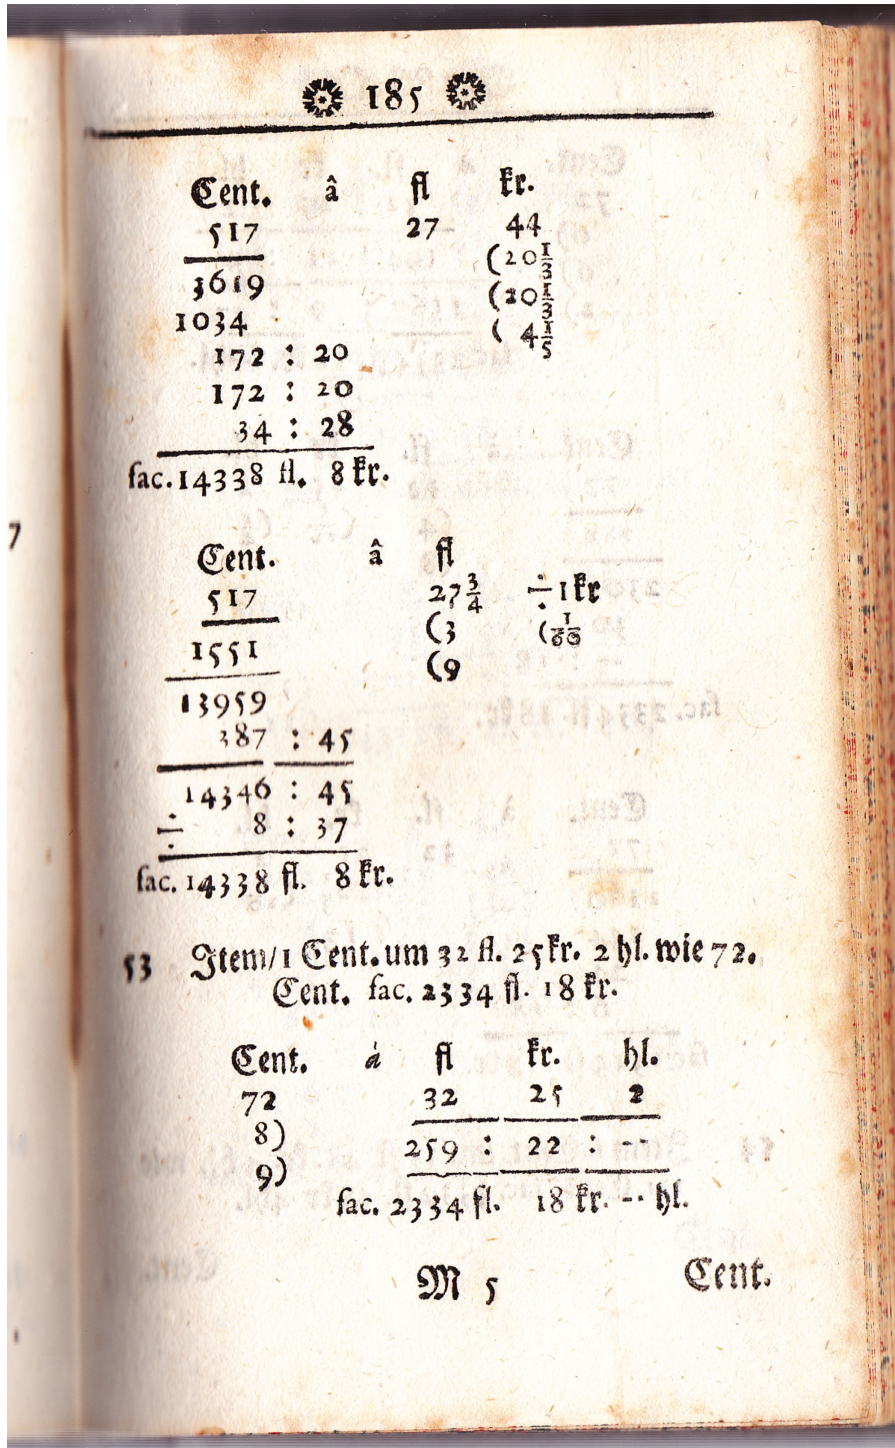 185
Cent. â fl kr.
517 27 44
3619 (20 1/3
1034 (20 1/3
172 : 20 ( 4 1/5
172 : 20
34 : 28
fac. 14338 fl. 8 kr.
7
Cent. â fl
517 27 3/4 ÷ 1 kr
1551 (3 (1/60
(9
13959
387 : 45
14346 : 45
÷ 8 : 37
fac. 14338 fl. 8 kr.
53 Item/ 1 Cent. um 32 fl. 25 kr. 2 hl. wie 72.
Cent. fac. 2334 fl. 18 kr.
Cent. à fl kr. hl.
72 32 25 2
8) 259 : 22 : --
9)
fac. 2334 fl. 18 kr. -- hl.
M 5 Cent.